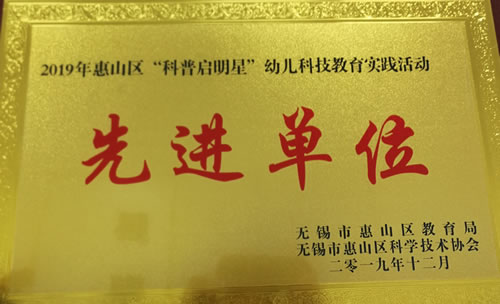 2019年惠山区“科普启明星”幼儿科技教育实践活动
先进单位
无锡市惠山区教育局
无锡市惠山区科学技术协会
二零一九年十二月